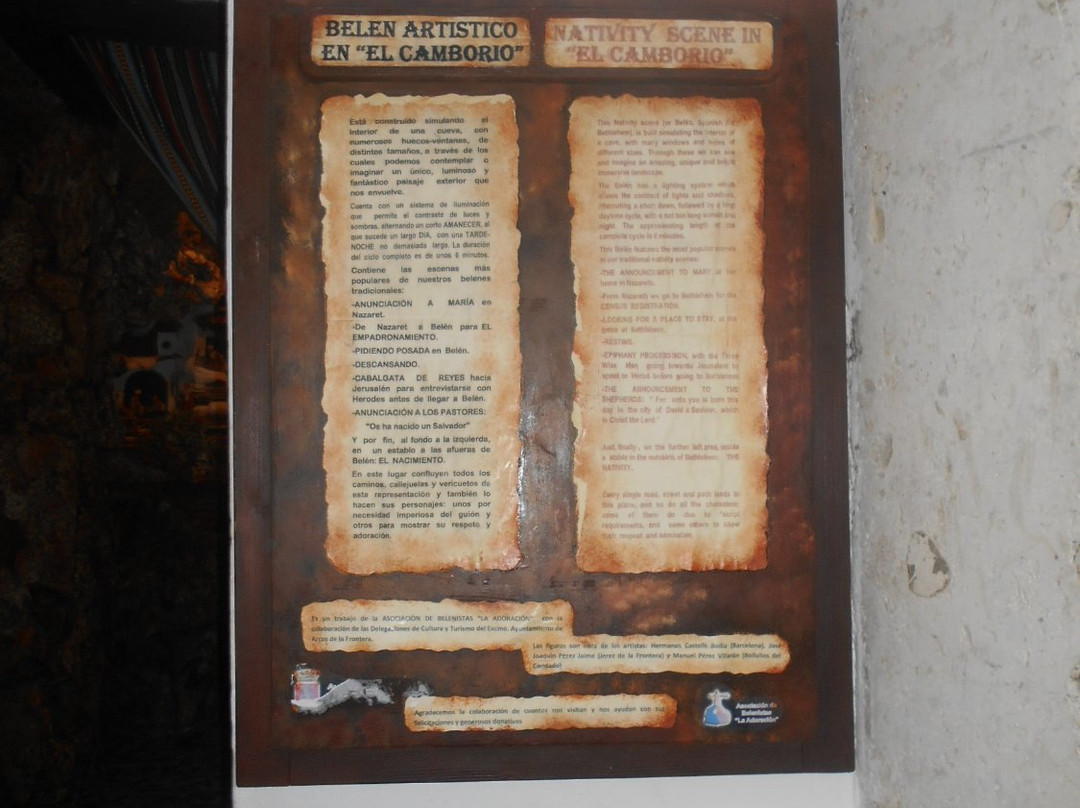 BELEN ARTISTICO
EN "EL CAMBORIO"
NATIVITY SCENE IN
"EL CAMBORIO"
Está construido simulando el
interior de una cueva, con
numerosos huecos-ventanas, de
distintos tamaños, a través de los
cuales podemos contemplar o
imaginar un único, luminoso y
fantástico paisaje exterior que
nos envuelve.
Cuenta con un sistema de iluminación
que permite el contraste de luces y
sombras, alternando un corto AMANECER, al
que sucede un largo DIA, con una TARDE-
NOCHE no demasiada larga. La duración
del ciclo completo es de unos 6 minutos.
Contiene las escenas más
populares de nuestros belenes
tradicionales:
-ANUNCIACIÓN A MARÍA en
Nazaret.
-De Nazaret a Belén para EL
EMPADRONAMIENTO.
-PIDIENDO POSADA en Belén.
-DESCANSANDO.
-CABALGATA DE REYES hacia
Jerusalén para entrevistarse con
Herodes antes de llegar a Belén.
-ANUNCIACIÓN A LOS PASTORES:
"Os ha nacido un Salvador"
Y por fin, al fondo a la izquierda,
en un establo a las afueras de
Belén: EL NACIMIENTO.
En este lugar confluyen todos los
caminos, callejuelas y vericuetos de
esta representación y también lo
hacen sus personajes: unos por
necesidad imperiosa del guión y
otros para mostrar su respeto y
adoración.
This Nativity scene (or Belén, Spanish for
Bethlehem), is built simulating the interior of
a cave, with many windows and holes of
different sizes. Through these we can see
and imagine an amazing, unique and bright
immersive landscape.
The Belén has a lighting system which
allows the contrast of lights and shadows,
alternating a short dawn, followed by a long
daytime cycle, with a not too long sunset and
night. The approximate length of the
complete cycle is 6 minutes.
This Belén features the most popular scenes
in our traditional nativity scenes:
-THE ANNOUNCEMENT TO MARY at her
home in Nazareth.
-From Nazareth we go to Bethlehem for the
CENSUS REGISTRATION.
-LOOKING FOR A PLACE TO STAY, at the
gates of Bethlehem.
-RESTING.
-EPIPHANY PROCESSION, with the Three
Wise Men going towards Jerusalem to
speak to Herod before going to Bethlehem.
-THE ANNOUNCEMENT TO THE
SHEPHERDS: " For unto you is born this
day in the city of David a Saviour, which
is Christ the Lord."
And, finally, on the further left area, inside
a stable in the outskirts of Bethlehem: THE
NATIVITY.
Every single road, street and path leads to
this place, and so do all the characters:
some of them do due to "script
requirements, and some others to show
their respect and admiration.
Es un trabajo de la ASOCIACIÓN DE BELENISTAS "LA ADORACIÓN" con la
colaboración de las Delegaciones de Cultura y Turismo del Excmo. Ayuntamiento de
Arcos de la Frontera.
Las figuras son obra de los artistas: Hermanos Castells (Barcelona), José
Joaquín Pérez Jaime (Jerez de la Frontera) y Manuel Pérez Villarán (Bollullos del
Condado)
Agradecemos la colaboración de cuantos nos visitan y nos ayudan con sus
felicitaciones y generosos donativos
Asociación de
Belenistas
"La Adoración"